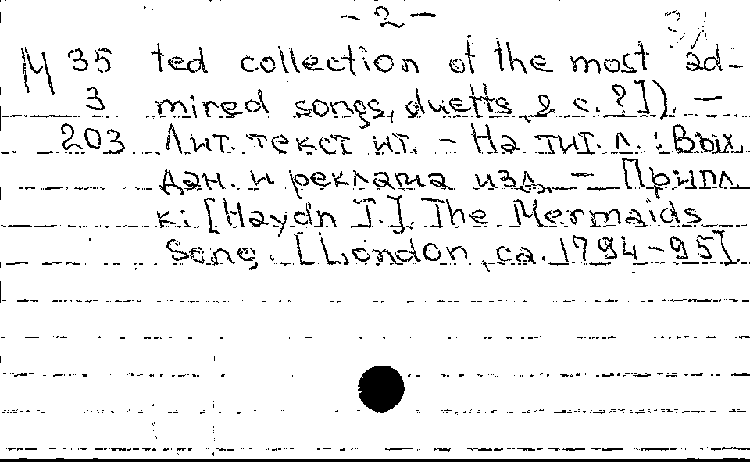 - 2 -
31
М 35 ted collection of the most ad-
3 mired songs, duetts, & c. ?]). -
203 Лит. текст ит. - На тит. л.: Вых.
дан. и реклама изд. - Припл.
к: [Haydn J.]. The Mermaids
Song. [London, ca. 1794-95]